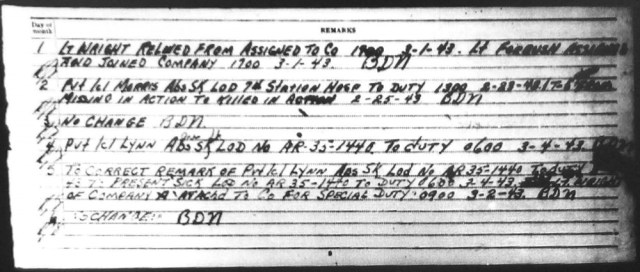 Day of month
REMARKS
1 Lt WRIGHT RELIEVED FROM ASSIGNED TO CO 1700 3-1-43. Lt FORBUSH ASSIGNED
AND JOINED COMPANY 1700 3-1-43. BDN
2 Pvt 1cl MORRIS Abs SK LOD 7th STATION HOSP TO DUTY 1300 2-28-43
MISSING IN ACTION TO KILLED IN ACTION 2-25-43 BDN
3 NO CHANGE BDN
4 Pvt 1cl LYNN Abs SK LOD No AR-35-1440. TO DUTY 0600 3-4-43. BDN
5 TO CORRECT REMARK OF Pvt 1cl LYNN Abs SK Lod No AR 35-1440 TO DUTY
TO PRESENT SICK LOD NO AR 35-1440 TO DUTY 0600 3-4-43.
OF COMPANY A ATTACHD TO CO FOR SPECIAL DUTY 0900 3-2-43. BDN
CHANGE BDN